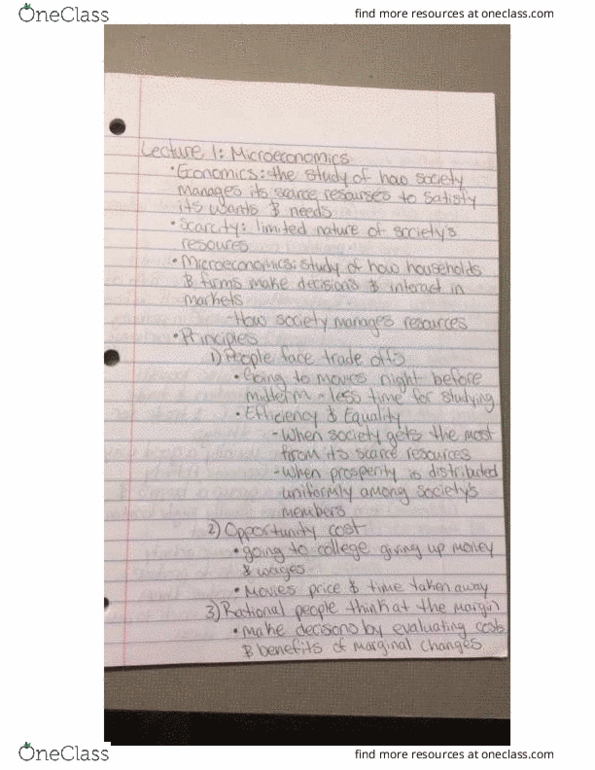 OneClass
find more resources at oneclass.com
Lecture 1: Microeconomics
• Economics: the study of how society
manages its scarce resourses to satisfy
its wants & needs
• Scarcity: limited nature of society's
resoures
• Microeconomics: study of how households
& firms make decisions & interact in
markets
-How society manages resources
• Principles
1) People face trade offs
• Going to movies night before
midterm - less time for studying
• Efficiency & Equality
-When society gets the most
from its scarce resources
-When prosperity is distributed
uniformly among society's
members
2) Opportunity cost
• going to college giving up money
& wages
• Movies price & time taken away
3) Rational people think at the margin
• make decisions by evaluating costs
& benefits of marginal changes
OneClass
find more resources at oneclass.com